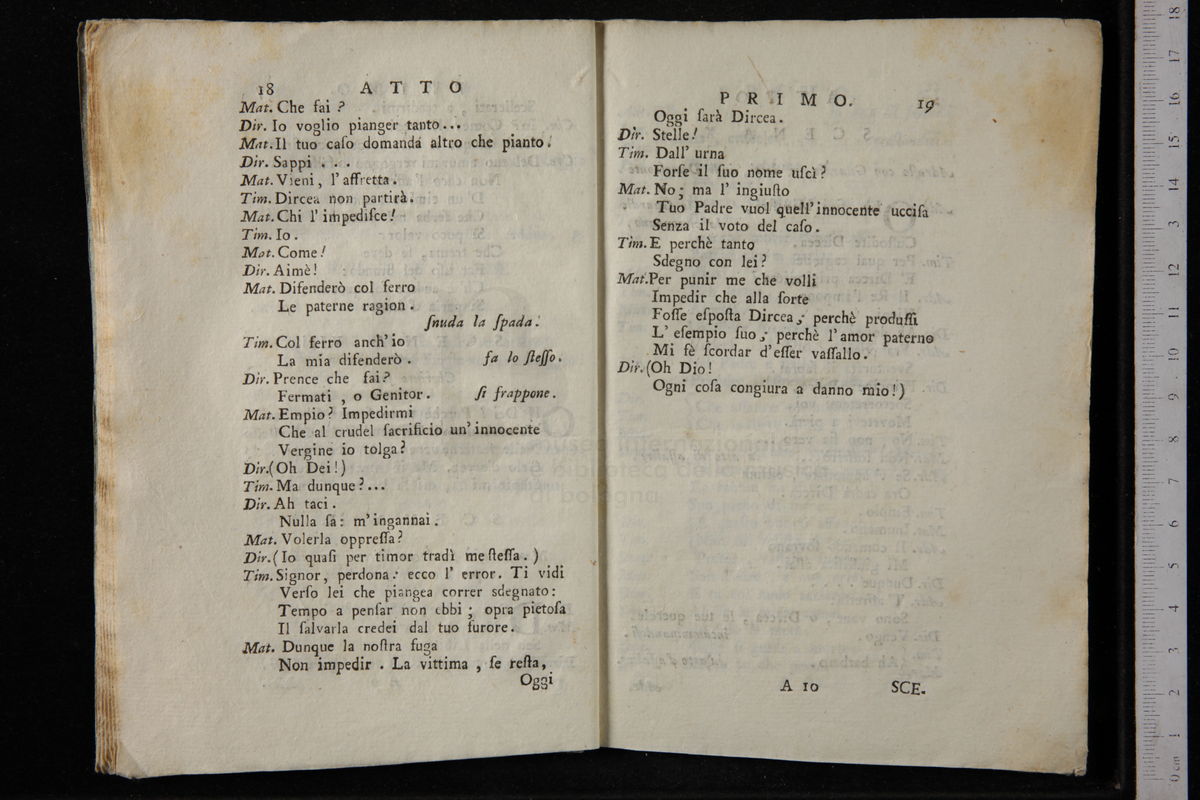 18 ATTO
Mat. Che fai ?
Dir. Io voglio pianger tanto...
Mat. Il tuo caſo domanda altro che pianto.
Dir. Sappi . . .
Mat. Vieni, l'affretta.
Tim. Dircea non partirà.
Mat. Chi l'impediſce!
Tim. Io.
Mat. Come!
Dir. Aimè!
Mat. Difenderò col ferro
Le paterne ragion.
ſnuda la ſpada.
Tim. Col ferro anch'io
La mia difenderò. fa lo ſteſſo.
Dir. Prence che fai?
Fermati , o Genitor. ſi frappone.
Mat. Empio? Impedirmi
Che al crudel ſacrificio un'innocente
Vergine io tolga?
Dir. (Oh Dei!)
Tim. Ma dunque?...
Dir. Ah taci.
Nulla ſa: m'ingannai.
Mat. Volerla oppreſſa?
Dir. (Io quaſi per timor tradì me ſteſſa. )
Tim. Signor, perdona: ecco l'error. Ti vidi
Verſo lei che piangea correr sdegnato:
Tempo a penſar non ebbi; opra pietoſa
Il ſalvarla credei dal tuo furore.
Mat. Dunque la noſtra fuga
Non impedir . La vittima , ſe reſta,
Oggi
PRIMO. 19
Oggi ſarà Dircea.
Dir. Stelle!
Tim. Dall' urna
Forſe il ſuo nome uſcì?
Mat. No; ma l' ingiuſto
Tuo Padre vuol quell'innocente ucciſa
Senza il voto del caſo.
Tim. E perchè tanto
Sdegno con lei?
Mat. Per punir me che volli
Impedir che alla ſorte
Foſſe eſpoſta Dircea; perchè produſſi
L' eſempio ſuo; perchè l'amor paterno
Mi fè ſcordar d'eſſer vaſſallo.
Dir. (Oh Dio!
Ogni coſa congiura a danno mio!)
A 10 SCE.
museo internazionale
e biblioteca della musica
di bologna